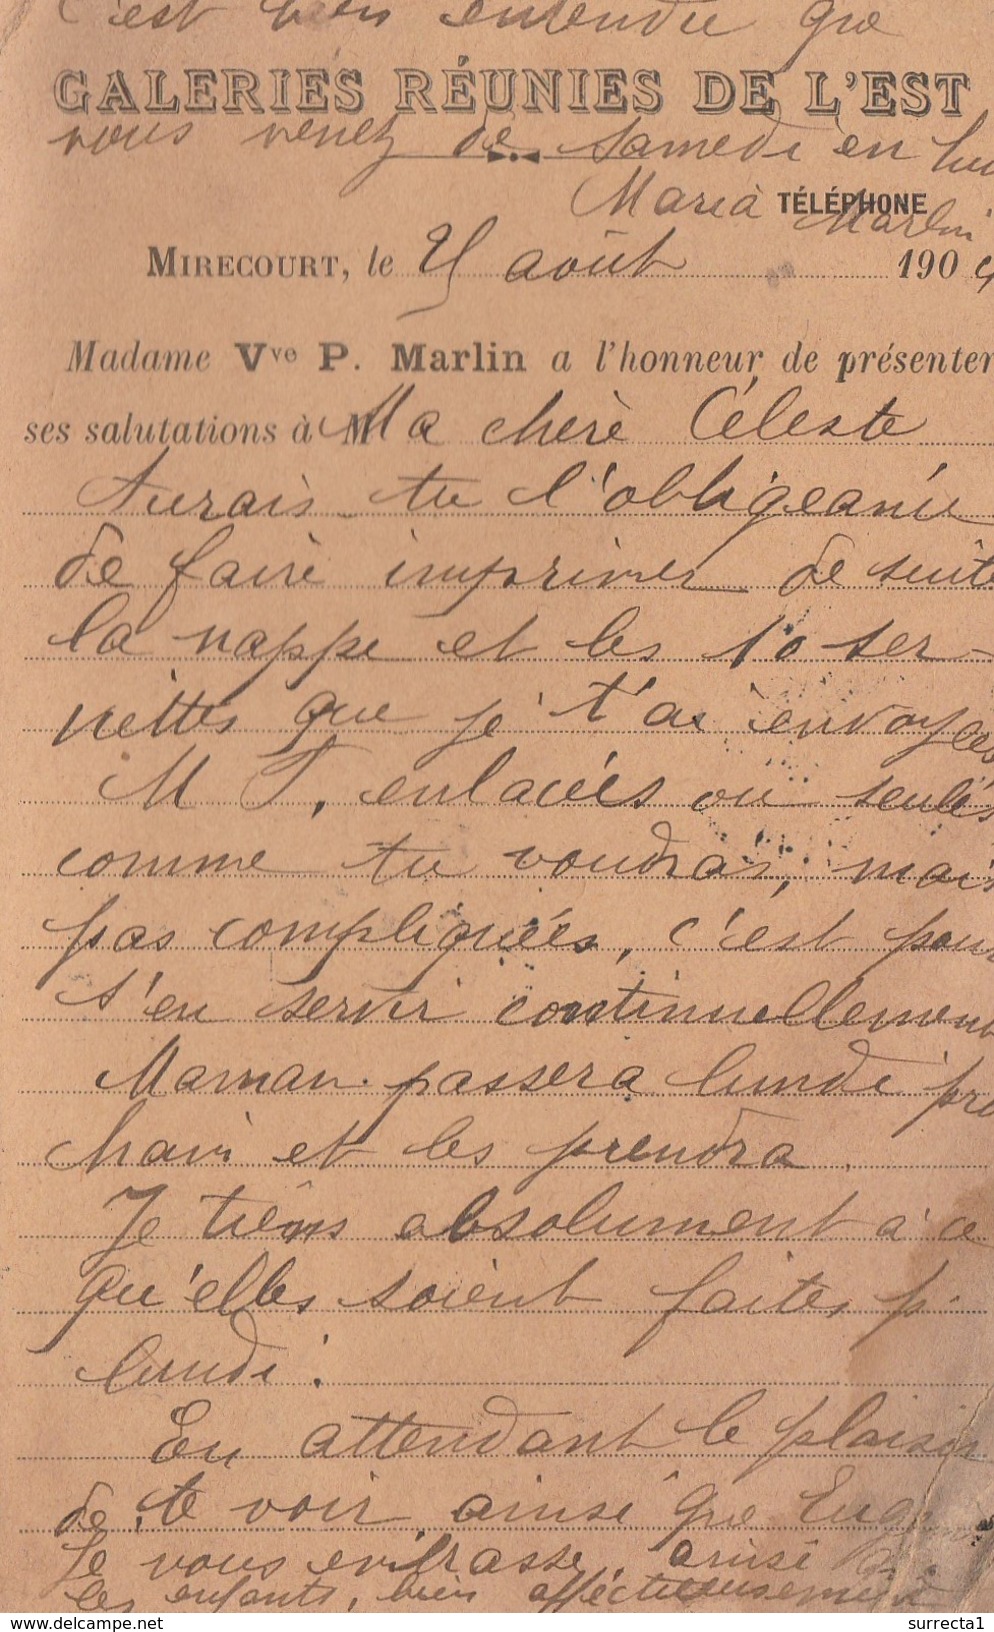 C'est bien entendu que
GALERIES RÉUNIES DE L'EST
vous venez de samedi en
Maria TÉLÉPHONE
Marlin
MIRECOURT, le 25 août 1904
Madame Vve P. Marlin a l'honneur de présenter
ses salutations à M Ma chère Céleste
Aurais-tu l'obligeance
de faire imprimer de suite
la nappe et les 10 ser-
viettes que je t'ai envoyées
M T, enlacées ou seules
comme tu voudras, mais
pas compliquées, c'est pour
s'en servir continuellement
Maman passera lundi pro
chain et les prendra.
Je tiens absolument à ce
qu'elles soient faites p.
lundi.
En attendant le plaisir
de te voir ainsi que
Je vous embrasse, ainsi
les enfants, bien affectueusement
www.delcampe.net
surrecta1